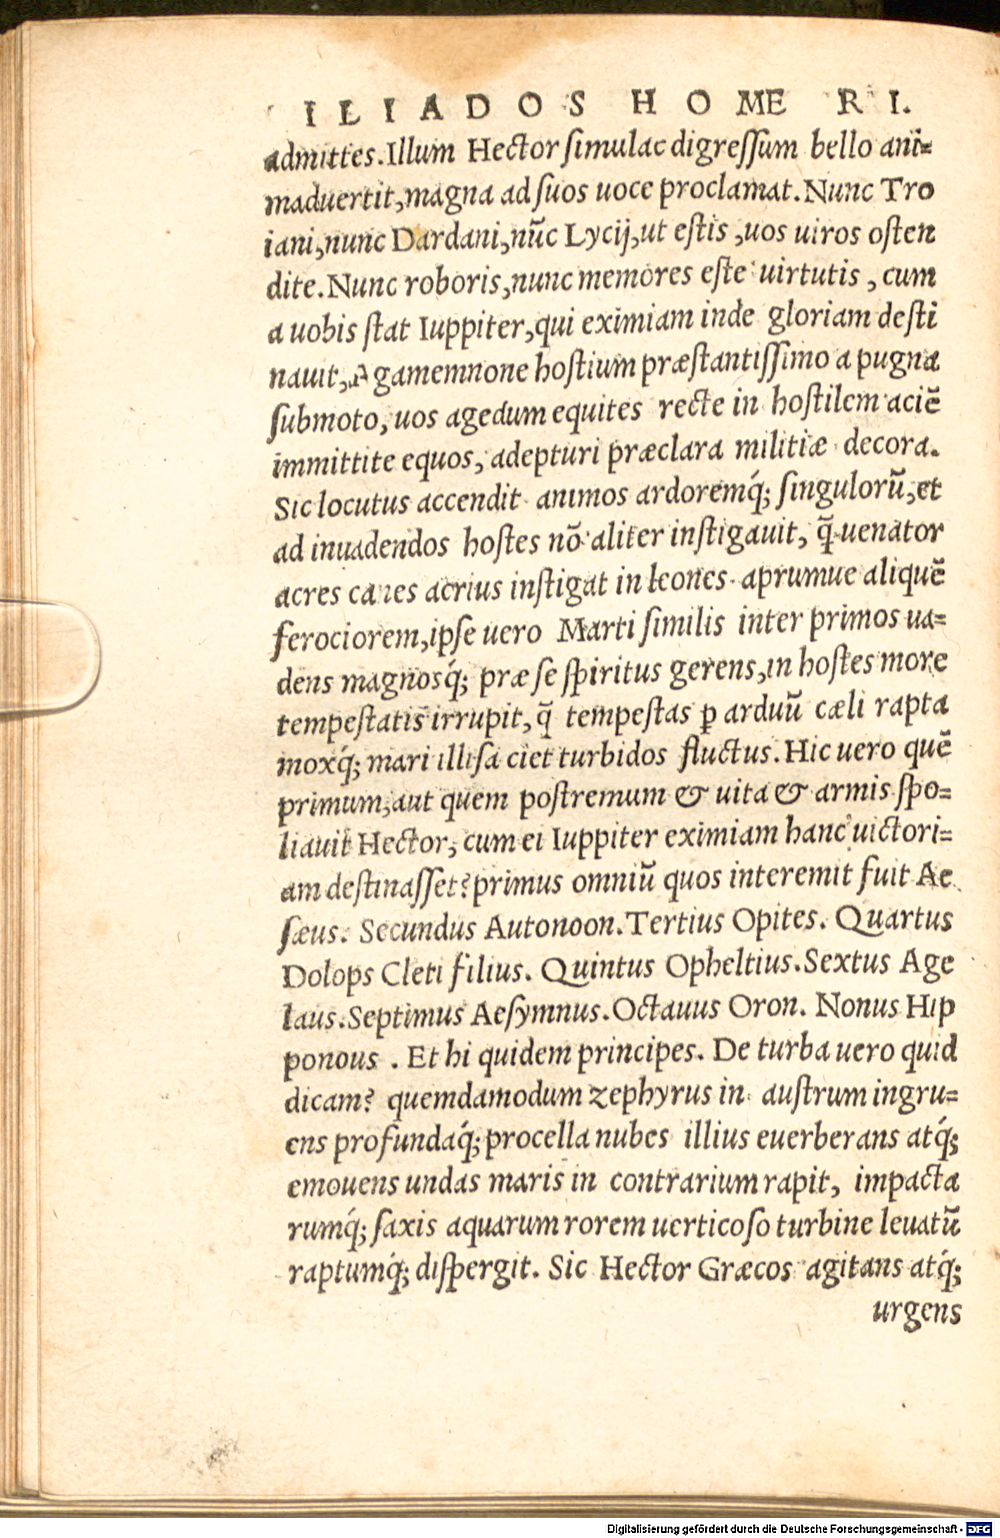 ILIADOS HOMERI.
admittes.Illum Hector ſimulac digreſſum bello ani=
maduertit,magna ad ſuos uoce proclamat.Nunc Tro
iani,nunc Dardani,nũc Lycij,ut eſtis,uos uiros oſten
dite.Nunc roboris,nunc memores eſte uirtutis, cum
a uobis ſtat Iuppiter,qui eximiam inde gloriam deſti
nauit,Agamemnone hoſtium præſtantiſſimo a pugna
ſubmoto, uos agedum equites recte in hoſtilem aciẽ
immittite equos, adepturi præclara militiæ decora.
Sic locutus accendit animos ardoremq́; ſingulorũ,et
ad inuadendos hoſtes nõ aliter inſtigauit, q̃ uenator
acres canes acrius inſtigat in leones aprumue aliquẽ
ferociorem,ipſe uero Marti ſimilis inter primos ua=
dens magnosq́; præ ſe ſpiritus gerens,in hoſtes more
tempeſtatis irrupit, q̃ tempeſtas ꝑ arduũ cæli rapta
moxq́; mari illiſa ciet turbidos fluctus.Hic uero quẽ
primum,aut quem poſtremum & uita & armis ſpo=
liauit Hector, cum ei Iuppiter eximiam hanc uictori=
am deſtinaſſet?primus omniũ quos interemit fuit Ae
ſæus. Secundus Autonoon.Tertius Opites. Quartus
Dolops Cleti filius. Quintus Opheltius.Sextus Age
laus.Septimus Aeſymnus.Octauus Oron. Nonus Hip
ponous . Et hi quidem principes. De turba uero quid
dicam? quemdamodum zephyrus in auſtrum ingru=
ens profundaq́; procella nubes illius euerberans atq́;
emouens undas maris in contrarium rapit, impacta
rumq́; ſaxis aquarum rorem uerticoſo turbine leuatũ
raptumq́; diſpergit. Sic Hector Græcos agitans atq́;
urgens
Digitalisierung gefördert durch die Deutsche Forschungsgemeinschaft - DFG